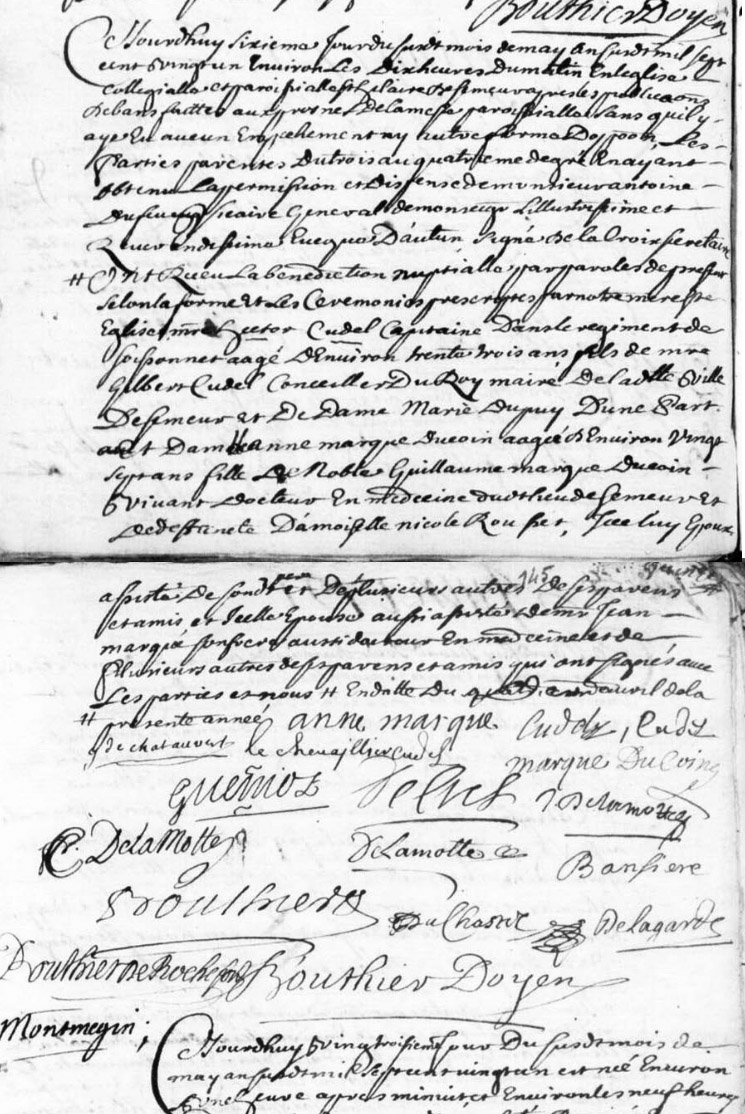 Bouthier Doyen
Cejourdhuy sixieme Jour du susdt mois de may an susdt mil sept
cent vingt un Environ Les Dix heures Du matin En leglise
Collegialle et paroissialle st hilaire de semeur apres les publications
De bans faittes aux prosnes De la messe paroissialle sans quil y
aye Eu aucun Empechement ny autre forme Dopposon, Les
Parties parentes Du trois au quatrieme degré En ayant
obtenu La permission et Dispense de monsieur antoine
vicaire General de monseigr Lillustrissime et
Reverendissime Evecque D'autun signé De la Croix secretaire
# Ont Receu La benediction nuptialle par paroles de present
selon la forme Et Les Ceremonies prescriptes par notre mere ste
Eglise, mre hector Cudel Capitaine Dans le regiment de
soissonnet aagé D'Environ trente trois ans fils de mre
Gilbert Cudel Conceiller Du Roy maire De la ditte ville
De semeur Et De Dame Marie Dupuy D'une Part.
anne marque Ducoin aagée D'Environ vingt
sept ans fille De Noble Guillaume marque Ducoin
vivant Docteur En medecine dudt lieu de semeur Et
De deffuncte Damoiselle nicole Rousset, Icelluy Epoux
145
assisté De son dt pere et De plusieurs autres De ses parens
et amis et Icelle Epouse aussi assistée de mr Jean
marque son frere aussi docteur En medecine et de
Plusieurs autres de ses parens et amis qui ont signés avec
Les parties et nous # En datte Du avril de la
# presente année anne marque Cudel, Cudel
De chatauvert le chevaillier Cudel marque DuCoing
Delamotte
DelaMotte Delamotte Bansiere
Bouthier DuChasne Delagarde
Bouthier de Rochefort Bouthier Doyen
Montmegin;
Cejourdhuy vingt troisieme Jour Du susdt mois de
may an susdt mil sept cent vingt un est née Environ
apres minuict et Environ les neuf heures